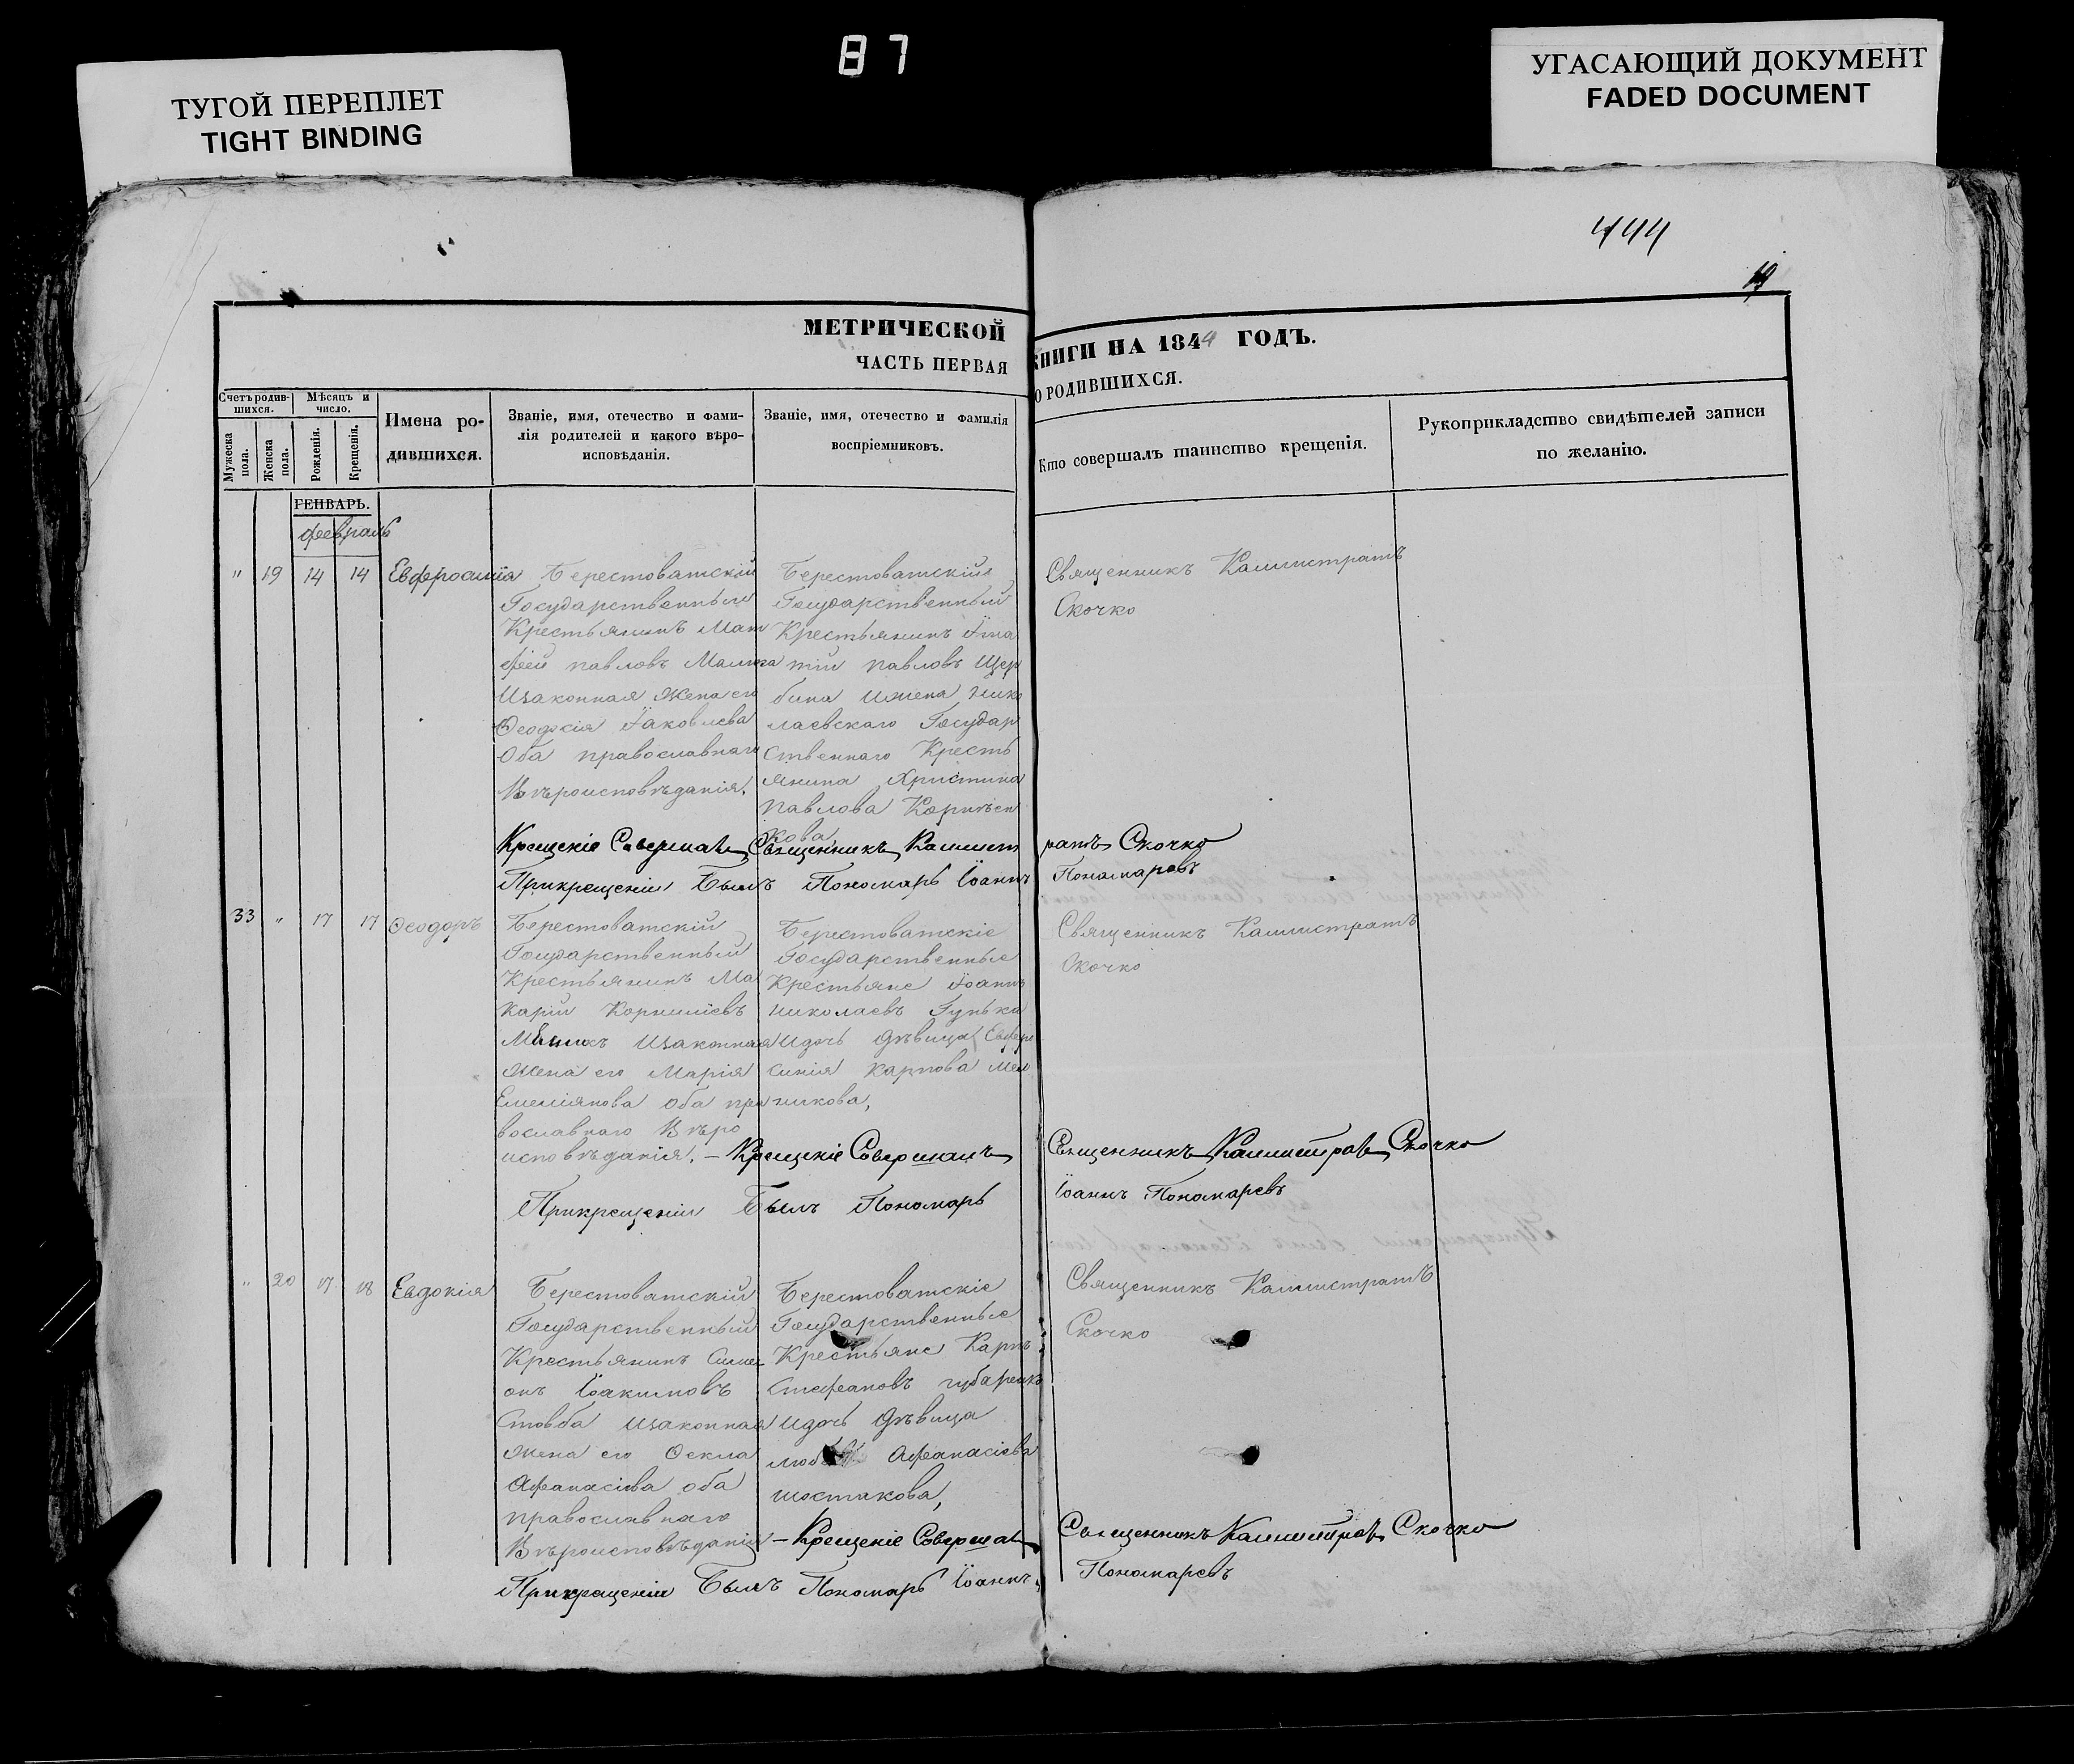 87
ТУГОЙ ПЕРЕПЛЕТ
TIGHT BINDING
УГАСАЮЩИЙ ДОКУМЕНТ
FADED DOCUMENT
444
19
МЕТРИЧЕСКОЙ КНИГИ НА 1844 ГОДЪ.
ЧАСТЬ ПЕРВАЯ О РОДИВШИХСЯ.
Счетъ родив-
шихся.
Мужеска
пола.
Женска
пола.
Мѣсяцъ и
число.
Рожденія.
Крещенія.
Имена ро-
дившихся.
Званіе, имя, отечество и фами-
лія родителей и какого вѣро-
исповѣданія.
Званіе, имя, отечество и фамилія
воспріемниковъ.
Кто совершалъ таинство крещенія.
Рукоприкладство свидѣтелей записи
по желанію.
ГЕНВАРЬ.
февраль
" 19 14 14 Евфросинія
Берестоватскій
Государственный
Крестьянинъ Мат
фей павловъ
Изаконная Жена его
Ѳеодосія Іаковлева
Оба православнаго
Вѣроисповѣданія.
Берестоватскій
Государственный
Крестьянинъ Игна
тій павловъ Щер
бина Ижена Нико
лаевскаго Государ
ственнаго Кресть
янина Христина
павлова Корнѣен
кова
Священникъ Каллистратъ
Скочко
Крещеніе Совершалъ Священникъ Каллистратъ Скочко
Прикрещеніи Былъ Пономарь Іоаннъ Пономаревъ
33 " 17 17 Ѳеодоръ
Берестоватскій
Государственный
Крестьянинъ Ма
карій Корниліевъ
Изаконная
Жена его Марія
Емеліянова Оба пра
вославнаго Вѣро
исповѣданія.
Берестоватскіе
Государственные
Крестьяне Іоаннъ
Николаевъ Гунька
Идочь Дѣвица Евфро
синія Карпова Мел
никова,
Священникъ Каллистратъ
Скочко
— Крещеніе Совершалъ Священникъ Каллистратъ Скочко
Прикрещеніи Былъ Пономарь Іоаннъ Пономаревъ
" 20 17 18 Евдокія
Берестоватскій
Государственный
Крестьянинъ Симе
онъ Іоакимовъ
Стовба Изаконная
Жена его Ѳекла
Афанасіева оба
православнаго
Вѣроисповѣданія
Берестоватскіе
Государственные
Крестьяне Карпъ
Стефановъ губаренко
Идочь Дѣвица
Афанасіева
шостакова,
Священникъ Каллистратъ
Скочко
— Крещеніе Совершалъ Священникъ Каллистратъ Скочко
Прикрещеніи Былъ Пономарь Іоаннъ Пономаревъ